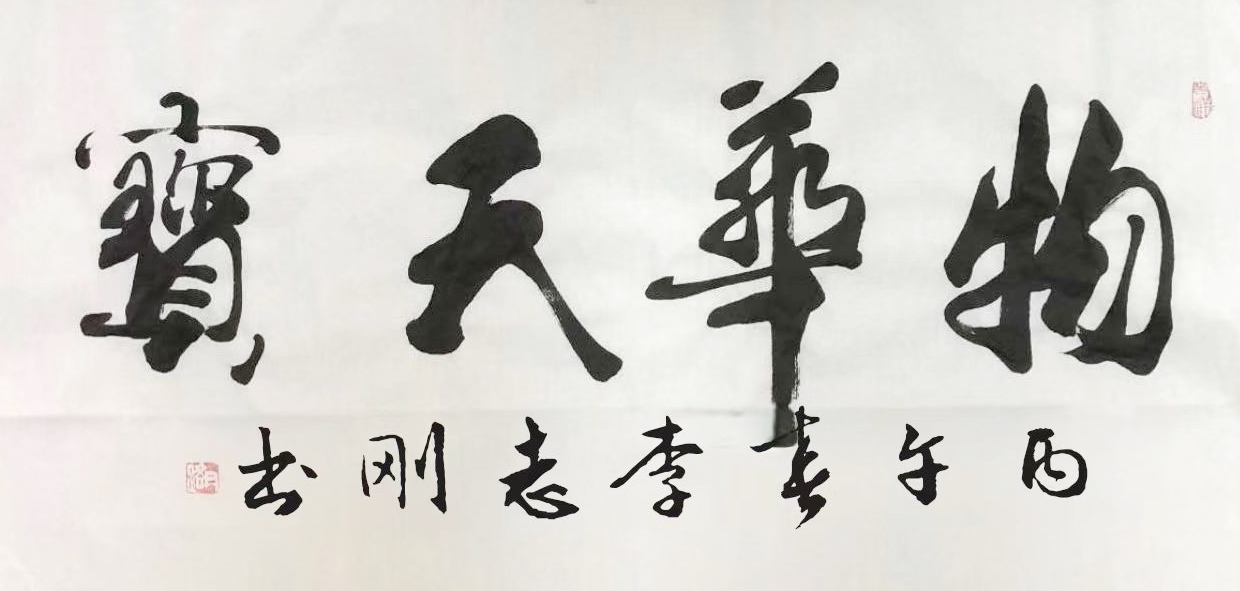 物華天寶
丙午春李志刚书